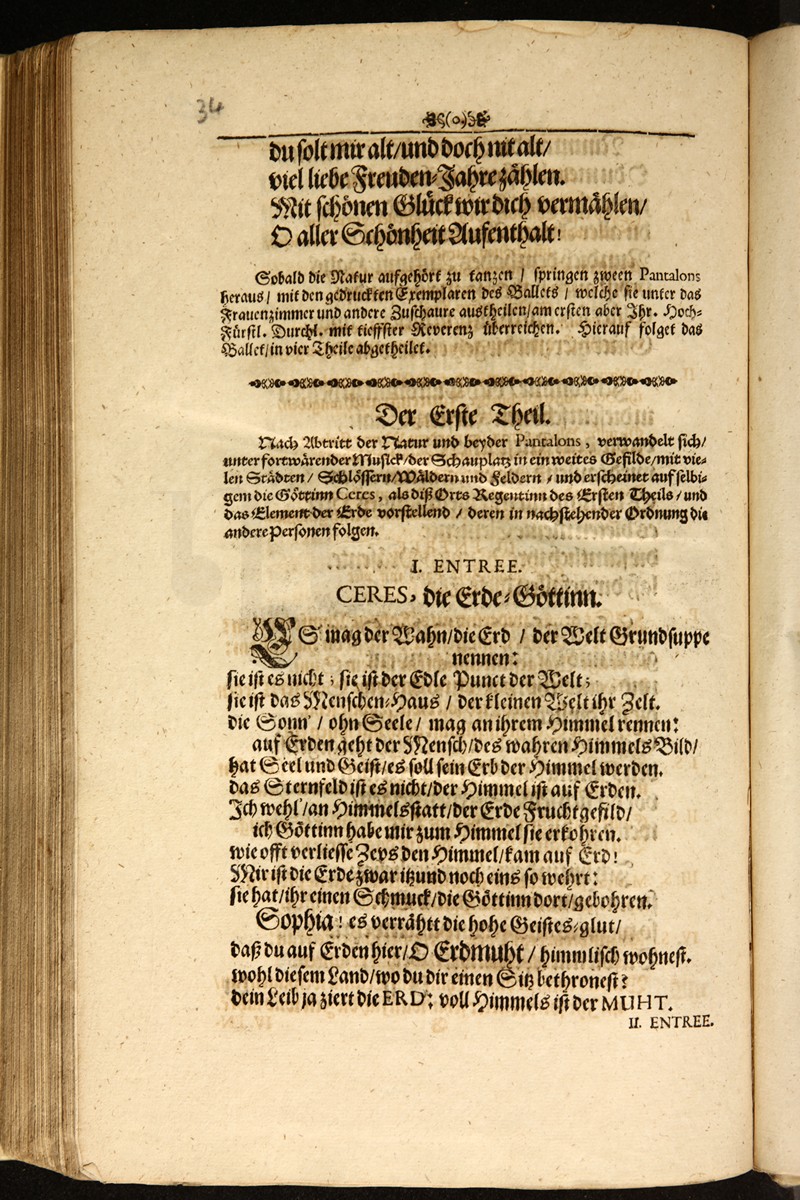 34
(o)
du solt mir alt/und doch nit alt/
viel liebe Freuden-Jahre zählen.
Mit schönen Glück wir dich vermählen/
O aller Schönheit Aufenthalt!
Sobald die Natur aufgehört zu tanzen / springen zween Pantalons
heraus/ mit den gedruckten Exemplaren des Ballets / welche sie unter das
Frauenzimmer und andere Zuschaure austheilen/am ersten aber Ihr. Hoch-
Fürstl. Durchl. mit tieffster Reverenz überreichen. Hierauf folget das
Ballet/in vier Theile abgetheilet.
Der Erste Theil.
Nach Abtritt der Natur und beyder Pantalons, verwandelt sich/
unter fortwärender Musick/der Schauplatz in ein weites Gefilde/mit vie-
len Städten / Schlössern/Wäldern und Feldern / und erscheinet auf selbi-
gem die Göttinn Ceres, als diß Orts Regentinn des Ersten Theils / und
das Element der Erde vorstellend / deren in nachstehender Ordnung die
andere Personen folgen.
I. ENTREE.
CERES, die Erde-Göttinn.
ES mag der Wahn/die Erd / der Welt Grundsuppe
nennen:
sie ist es nicht; sie ist der Edle Punct der Welt;
sie ist das Menschen-Haus / der kleinen Welt ihr Zelt.
die Sonn' / ohn Seele/ mag an ihrem Himmel rennen:
auf Erden geht der Mensch/des wahren Himmels Bild/
hat Seel und Geist/es soll sein Erb der Himmel werden.
das Sternfeld ist es nicht/der Himmel ist auf Erden.
Ich wehl'/an Himmelsstatt/der Erde Fruchtgefild/
ich Göttinn habe mir zum Himmel sie erkohren.
wie offt verliesse Zevs den Himmel/kam auf Erd!
Mir ist die Erde zwar itzund noch eins so wehrt:
sie hat/ihr einen Schmuck/die Göttinn dort/gebohren.
Sophia! es verräht dich hohe Geistes-glut/
daß du auf Erden hier/O Erdmuht / himmlisch wohnest.
wohl diesem Land/wo du dir einen Sitz bethronest?
dein Leib ja ziert die ERD; voll Himmels ist der MUHT.
II. ENTREE.